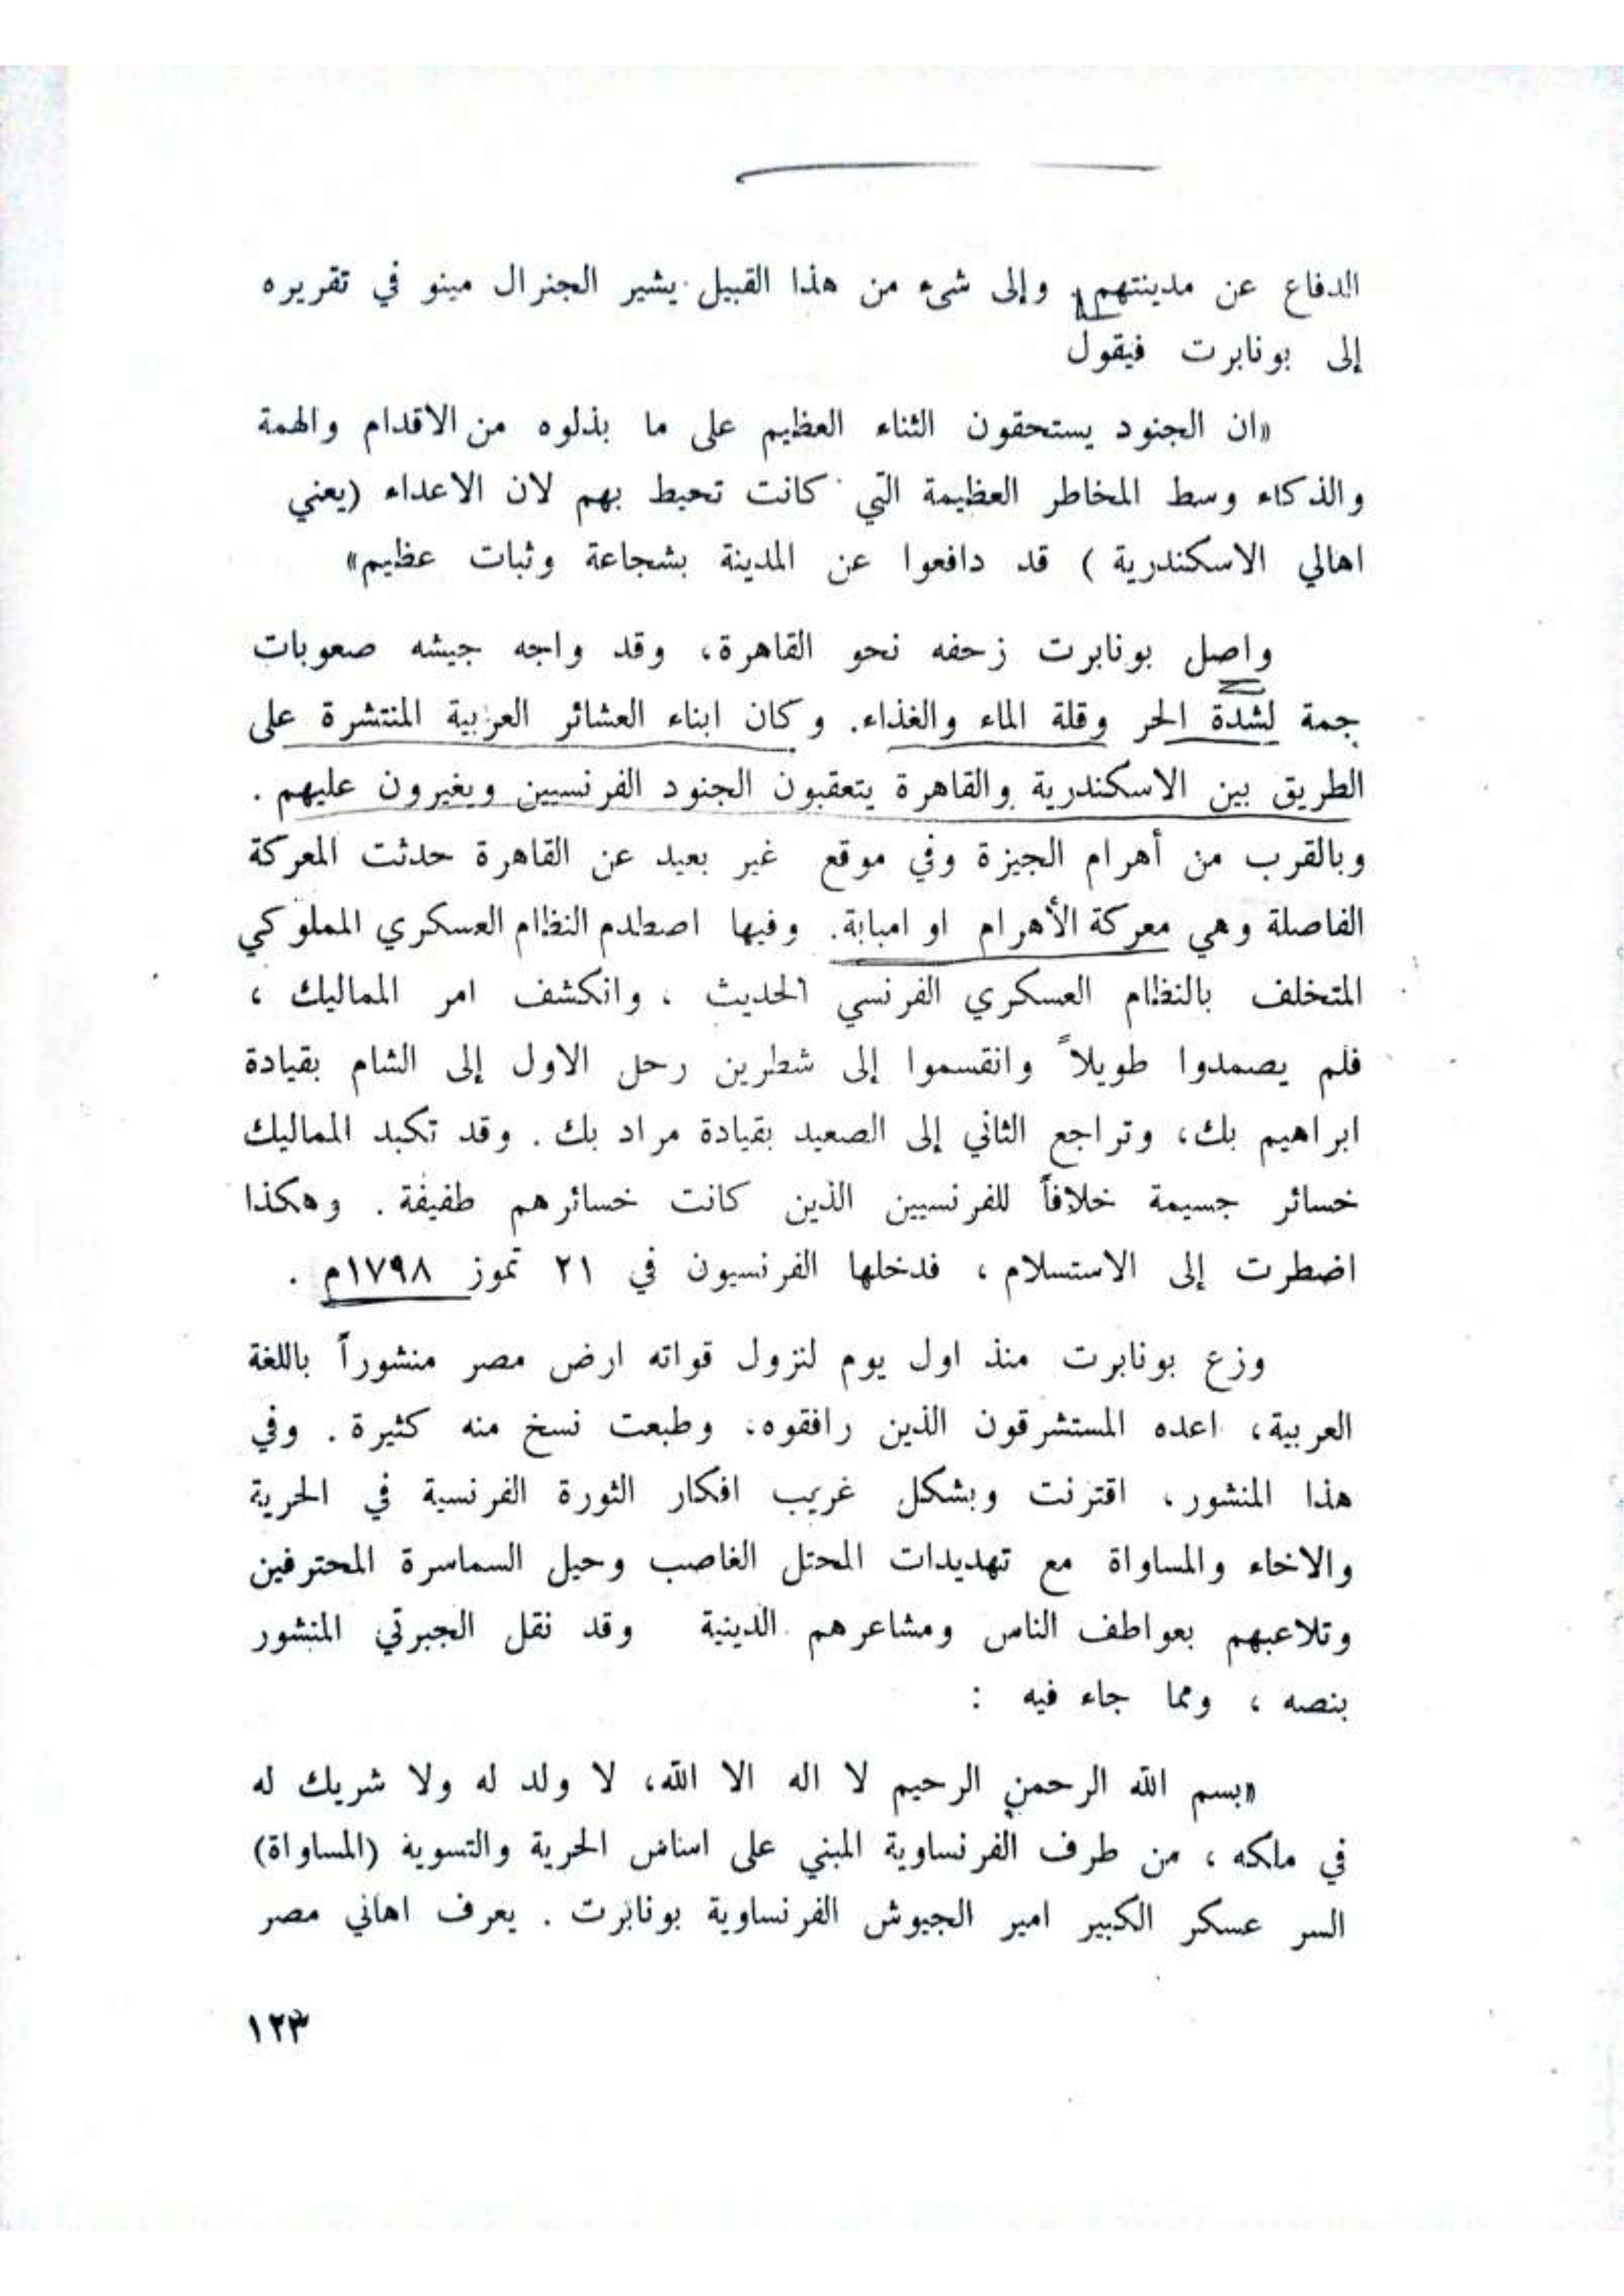 الدفاع عن مدينتهم. وإلى شيء من هذا القبيل يشير الجنرال مينو في تقريره
إلى بونابرت فيقول
«ان الجنود يستحقون الثناء العظيم على ما بذلوه من الاقدام والهمة
والذكاء وسط المخاطر العظيمة التي كانت تحيط بهم لان الاعداء (يعني
اهالي الاسكندرية ) قد دافعوا عن المدينة بشجاعة وثبات عظيم»
واصل بونابرت زحفه نحو القاهرة، وقد واجه جيشه صعوبات
جمة لشدة الحر وقلة الماء والغذاء. وكان ابناء العشائر العربية المنتشرة على
الطريق بين الاسكندرية والقاهرة يتعقبون الجنود الفرنسيين ويغيرون عليهم .
وبالقرب من أهرام الجيزة وفي موقع غير بعيد عن القاهرة حدثت المعركة
الفاصلة وهي معركة الأهرام او امبابة. وفيها اصطدم النظام العسكري المملوكي
المتخلف بالنظام العسكري الفرنسي الحديث ، وانكشف امر المماليك ،
فلم يصمدوا طويلاً وانقسموا إلى شطرين رحل الاول إلى الشام بقيادة
ابراهيم بك، وتراجع الثاني إلى الصعيد بقيادة مراد بك . وقد تكبد المماليك
خسائر جسيمة خلافاً للفرنسيين الذين كانت خسائرهم طفيفة . وهكذا
اضطرت إلى الاستسلام ، فدخلها الفرنسيون في ٢١ تموز ١٧٩٨م .
وزع بونابرت منذ اول يوم لنزول قواته ارض مصر منشوراً باللغة
العربية، اعده المستشرقون الذين رافقوه، وطبعت نسخ منه كثيرة . وفي
هذا المنشور، اقترنت وبشكل غريب افكار الثورة الفرنسية في الحرية
والاخاء والمساواة مع تهديدات المحتل الغاصب وحيل السماسرة المحترفين
وتلاعبهم بعواطف الناس ومشاعرهم الدينية وقد نقل الجبرتي المنشور
بنصه ، ومما جاء فيه :
«بسم الله الرحمن الرحيم لا اله الا الله، لا ولد له ولا شريك له
في ملكه ، من طرف الفرنساوية المبني على اساس الحرية والتسوية (المساواة)
السر عسكر الكبير امير الجيوش الفرنساوية بونابرت . يعرف اهالي مصر
١٢٣